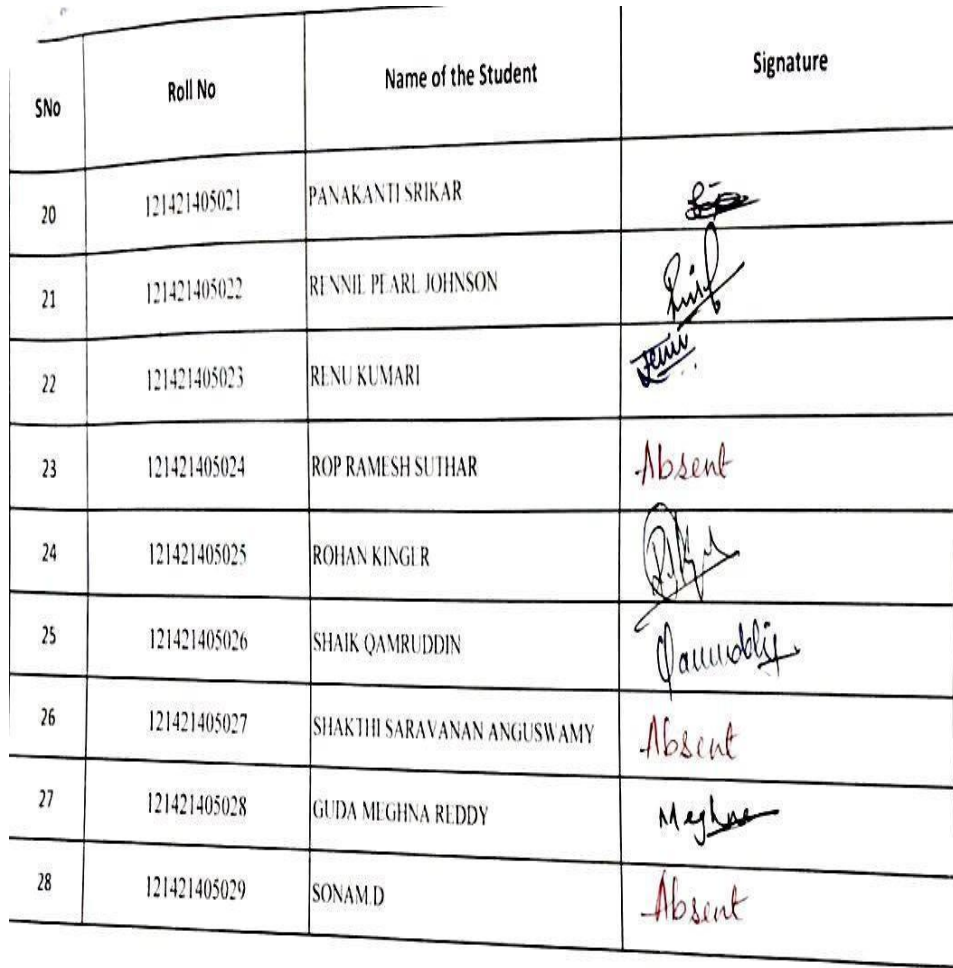 SNo Roll No Name of the Student Signature
20 121421405021 PANAKANTI SRIKAR
21 121421405022 RENNIE PEARL JOHNSON
22 121421405023 RENU KUMARI
23 121421405024 ROP RAMESH SUTHAR Absent
24 121421405025 ROHAN KINGER
25 121421405026 SHAIK QAMRUDDIN Qamruddin
26 121421405027 SHAKTHI SARAVANAN ANGUSWAMY Absent
27 121421405028 GUDA MEGHNA REDDY Meghna
28 121421405029 SONAM.D Absent